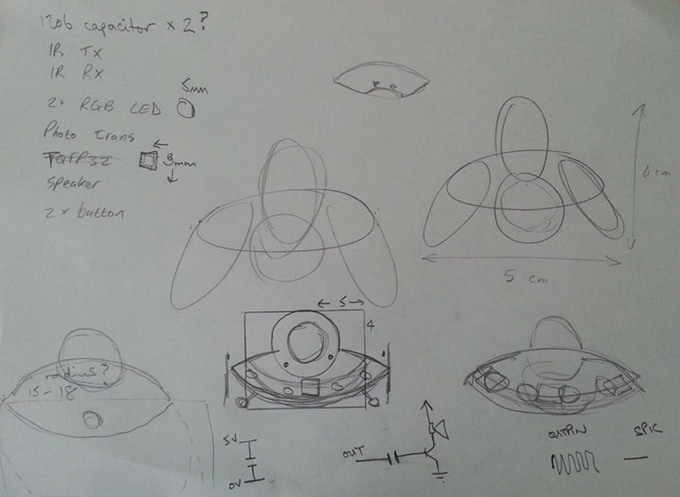 120b capacitor x 2?
IR TX
IR RX
2x RGB LED
5mm
Photo trans
TQFP32
9mm
speaker
2 x button
6cm
5 cm
5
4
radius?
15-18
5V
0V
OUT
OUTPIN
SPK